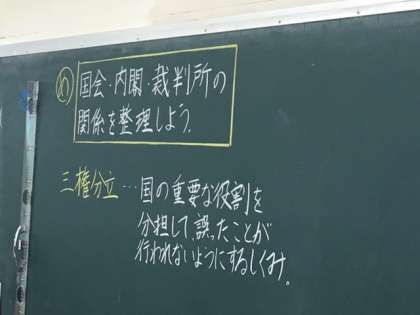 め 国会・内閣・裁判所の
関係を整理しよう。
三権分立…国の重要な役割を
分担して、誤ったことが
行われないようにするしくみ。